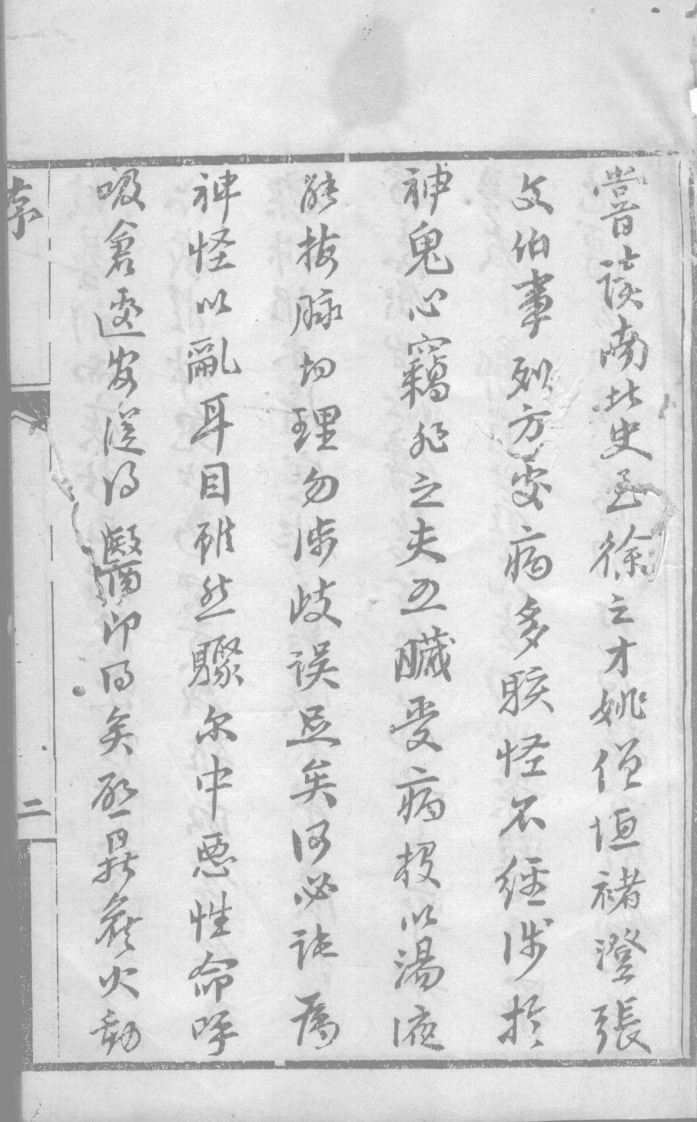 嘗談南北史至徐之才姚僧垣褚澄張
文伯輩列方安病多駭怪不經涉於
神鬼心竊非之夫五臟受病投以湯液
能按脉切理勿涉歧誤足矣何必詭爲
神怪以亂耳目雖然驟尔中惡性命呼
吸倉遽安從得醫即得矣
火動
序
二